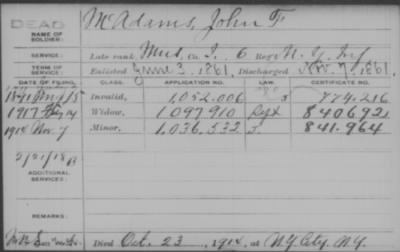 DEAD
NAME OF SOLDIER: McAdams, John F
SERVICE: Late rank, Mus, Co. I, 6 Reg't N.Y. Inf
TERM OF SERVICE: Enlisted June 3, 1861, Discharged Nov. 7, 1861.
DATE OF FILING. CLASS. APPLICATION NO. LAW. CERTIFICATE NO.
1891 Invalid, 1,052,006 774.216
1917 Widow, 1097910 840692
1914 Nov. 7 Minor, 1,036,532 841.964
ADDITIONAL SERVICES:
REMARKS:
Died Oct. 23, 1914, at N.Y. City, N.Y.